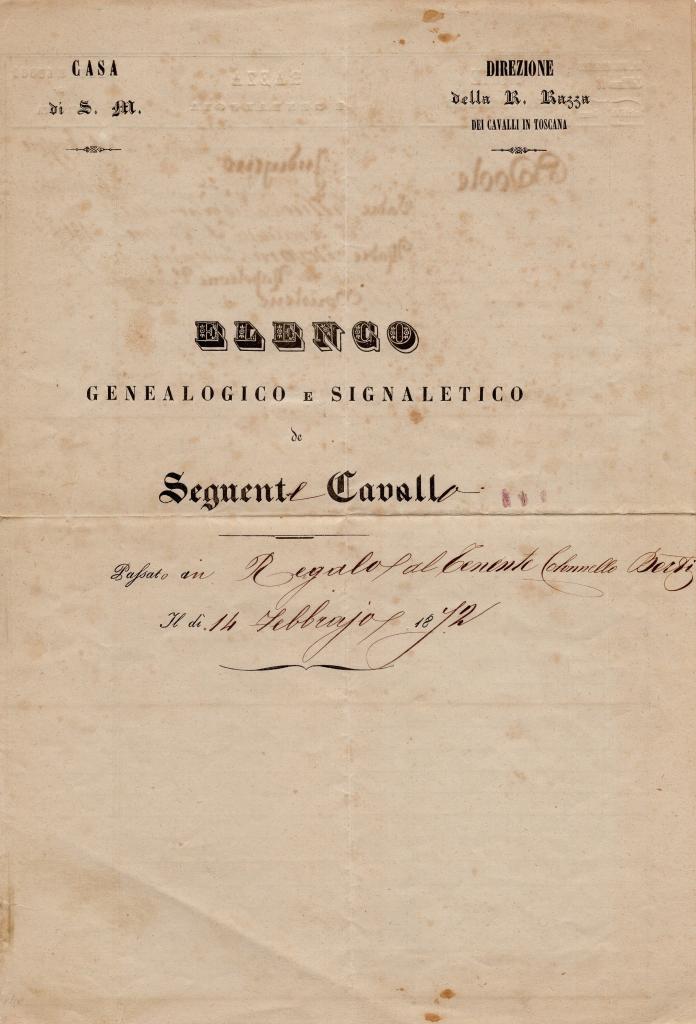 CASA
di S. M.
DIREZIONE
della R. Razza
DEI CAVALLI IN TOSCANA
ELENCO
GENEALOGICO E SIGNALETICO
de
Seguente Cavallo
Passato in Regalo al Tenente Colonnello
Il dì 14 Febbrajo 1872